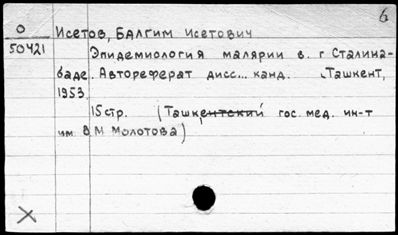 6
О Исетов, Балгим Исетович
50421 Эпидемиология малярии в. г Сталина-
баде. Автореферат дисс... канд. Ташкент,
1953.
15 стр. (Ташкентский гос. мед. ин-т
им. В.М. Молотова)